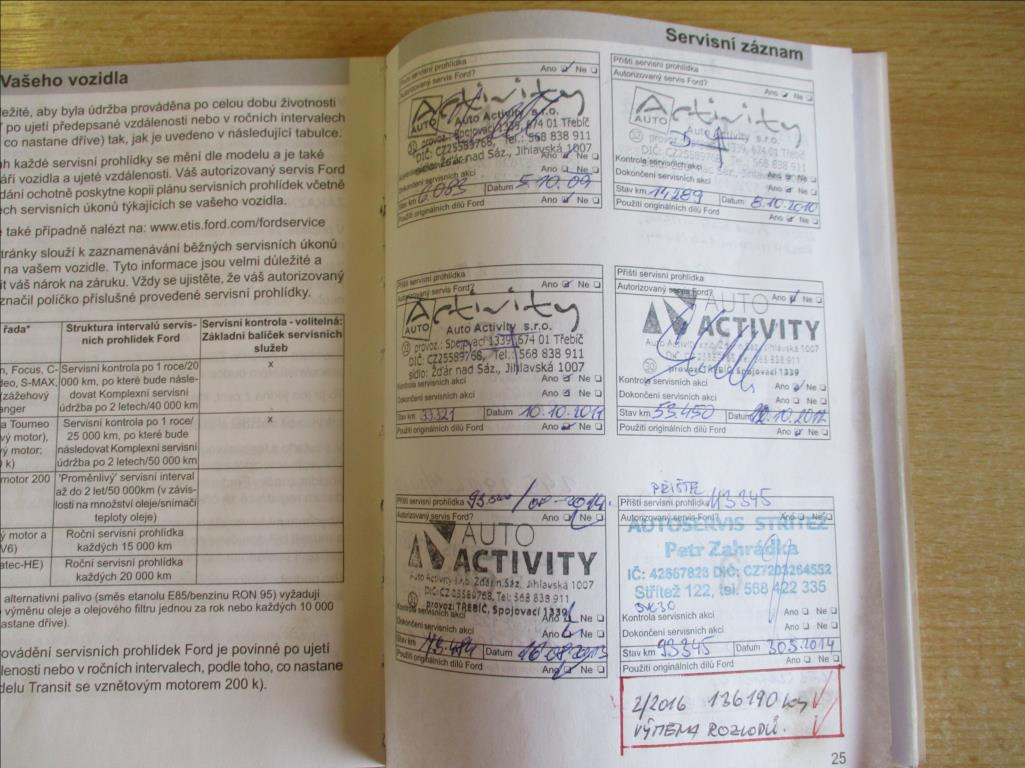 Vašeho vozidla
ležité, aby byla údržba prováděna po celou dobu životnosti
po ujetí předepsané vzdálenosti nebo v ročních intervalech
co nastane dříve) tak, jak je uvedeno v následující tabulce.
ah každé servisní prohlídky se mění dle modelu a je také
áří vozidla a ujeté vzdálenosti. Váš autorizovaný servis Ford
dání ochotně poskytne kopii plánu servisních prohlídek včetně
ech servisních úkonů týkajících se vašeho vozidla.
e také případně nalézt na: www.etis.ford.com/fordservice
stránky slouží k zaznamenávání běžných servisních úkonů
na vašem vozidle. Tyto informace jsou velmi důležité a
it váš nárok na záruku. Vždy se ujistěte, že váš autorizovaný
značil políčko příslušné provedené servisní prohlídky.
řada*
Struktura intervalů servis-
ních prohlídek Ford
Servisní kontrola - volitelná:
Základní balíček servisních
služeb
n, Focus, C-
deo, S-MAX,
(zážehový
anger
Servisní kontrola po 1 roce/20
000 km, po které bude násle-
dovat Komplexní servisní
údržba po 2 letech/40 000 km
x
a Tourneo
vý motor),
vý motor;
0 k)
Servisní kontrola po 1 roce/
25 000 km, po které bude
následovat Komplexní servisní
údržba po 2 letech/50 000 km
x
motor 200
'Proměnlivý' servisní interval
až do 2 let/50 000km (v závis-
losti na množství oleje/snímači
teploty oleje)
ý motor a
V6)
Roční servisní prohlídka
každých 15 000 km
atec-HE)
Roční servisní prohlídka
každých 20 000 km
alternativní palivo (směs etanolu E85/benzinu RON 95) vyžadují
výměnu oleje a olejového filtru jednou za rok nebo každých 10 000
nastane dříve).
ovádění servisních prohlídek Ford je povinné po ujetí
lenosti nebo v ročních intervalech, podle toho, co nastane
delu Transit se vznětovým motorem 200 k).
Servisní záznam
Příští servisní prohlídka
Autorizovaný servis Ford? Ano Ne
Activity
AUTO
Auto Activity s.r.o.
provoz.: Spojovací 1339, 674 01 Třebíč
DIČ: CZ25589768, Tel.: 568 838 911
sídlo: Žďár nad Sáz., Jihlavská 1007
Kontrola servisních akcí Ano Ne
Dokončení servisních akcí Ano Ne
Stav km 6085 Datum 5.10.09
Použití originálních dílů Ford Ano Ne
Příští servisní prohlídka
Autorizovaný servis Ford? Ano Ne
Activity
AUTO
Auto Activity s.r.o.
provoz.: Spojovací 1339, 674 01 Třebíč
DIČ: CZ25589768, Tel.: 568 838 911
sídlo: Žďár nad Sáz., Jihlavská 1007
Kontrola servisních akcí Ano Ne
Dokončení servisních akcí Ano Ne
Stav km 14289 Datum 8.10.2010
Použití originálních dílů Ford Ano Ne
Příští servisní prohlídka
Autorizovaný servis Ford? Ano Ne
Activity
AUTO
Auto Activity s.r.o.
provoz.: Spojovací 1339, 674 01 Třebíč
DIČ: CZ25589768, Tel.: 568 838 911
sídlo: Žďár nad Sáz., Jihlavská 1007
Kontrola servisních akcí Ano Ne
Dokončení servisních akcí Ano Ne
Stav km 33321 Datum 10.10.2011
Použití originálních dílů Ford Ano Ne
Příští servisní prohlídka
Autorizovaný servis Ford? Ano Ne
AUTO
ACTIVITY
Jihlavská 1007
568 838 911
provoz: TŘEBÍČ, Spojovací 1339
Kontrola servisních akcí Ano Ne
Dokončení servisních akcí Ano Ne
Stav km 53450 Datum 10.2012
Použití originálních dílů Ford Ano Ne
Příští servisní prohlídka
Autorizovaný servis Ford? Ano Ne
AUTO
ACTIVITY
Auto Activity s.r.o. Žďár n.Sáz. Jihlavská 1007
DIČ: CZ25589768, Tel: 568 838 911
provoz: TŘEBÍČ, Spojovací 1339
Kontrola servisních akcí Ano Ne
Dokončení servisních akcí Ano Ne
Stav km 73484 Datum
Použití originálních dílů Ford Ano Ne
PŘÍŠTĚ
Příští servisní prohlídka 113345
Autorizovaný servis Ford? Ano Ne
AUTOSERVIS STŘÍTEŽ
Petr Zahrádka
IČ: 42667828 DIČ: CZ7203264552
Střítež 122, tel. 568 422 335
5W30
Kontrola servisních akcí Ano Ne
Dokončení servisních akcí Ano Ne
Stav km 93345 Datum 30.5.2014
Použití originálních dílů Ford Ano Ne
2/2016 136190 km
VÝMĚNA ROZVODŮ.
25